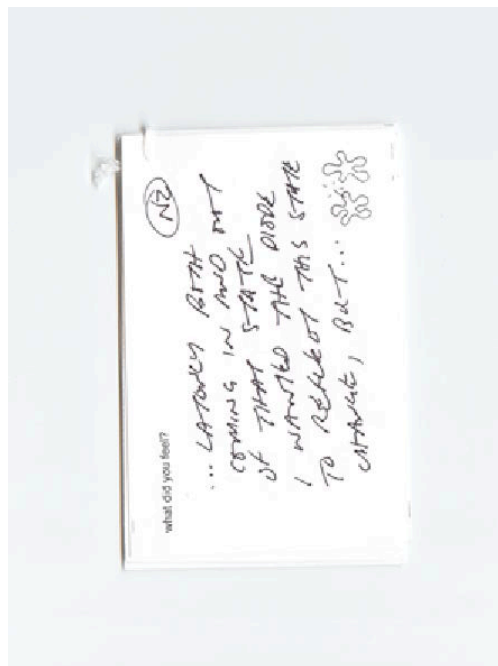 what did you feel?
NZ
... LATENCY BOTH
COMING IN AND OUT
OF THAT STATE
I WANTED THE DIODE
TO REFLECT THIS STATE
CHANGE, BUT...